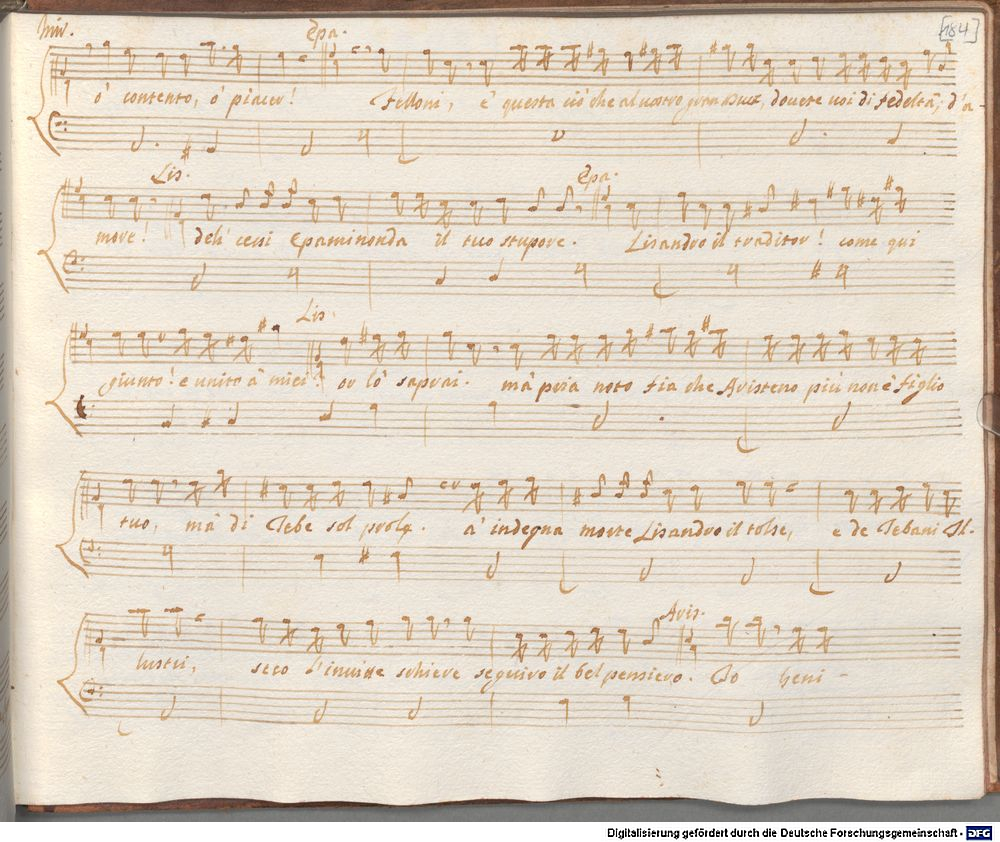 Epa. [184]
ò contento, ò piacer! Felloni, è questa ciò che al vostro gran Duce, dovete voi di fedeltà, d'a-
Lis. Epa.
more! deh' cessi Epaminonda il tuo stupore. Lisandro il traditor! come qui
Lis.
giunto! e unito à miei! or lo saprai. mà pria noto fia che Aristeno più non è figlio
tuo, mà di Tebe sol prole. à indegna morte Lisandro il tolse, e de Tebani Il-
Aris.
lustri, seco l'invitte schiere seguiro il bel pensiero. Io beni-
Digitalisierung gefördert durch die Deutsche Forschungsgemeinschaft - DFG